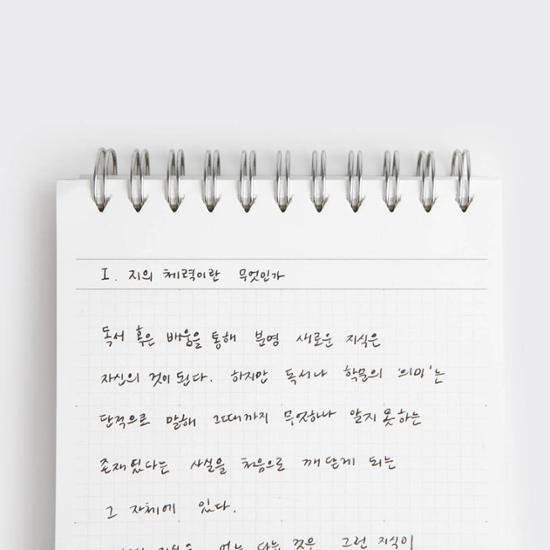 I. 지의 체력이란 무엇인가
독서 혹은 배움을 통해 분명 새로운 지식은
자신의 것이 된다. 하지만 독서나 학문의 '의미'는
단적으로 말해 그때까지 무엇하나 알지 못하는
존재였다는 사실을 처음으로 깨닫게 되는
그 자체에 있다.
것은 그런 지식이